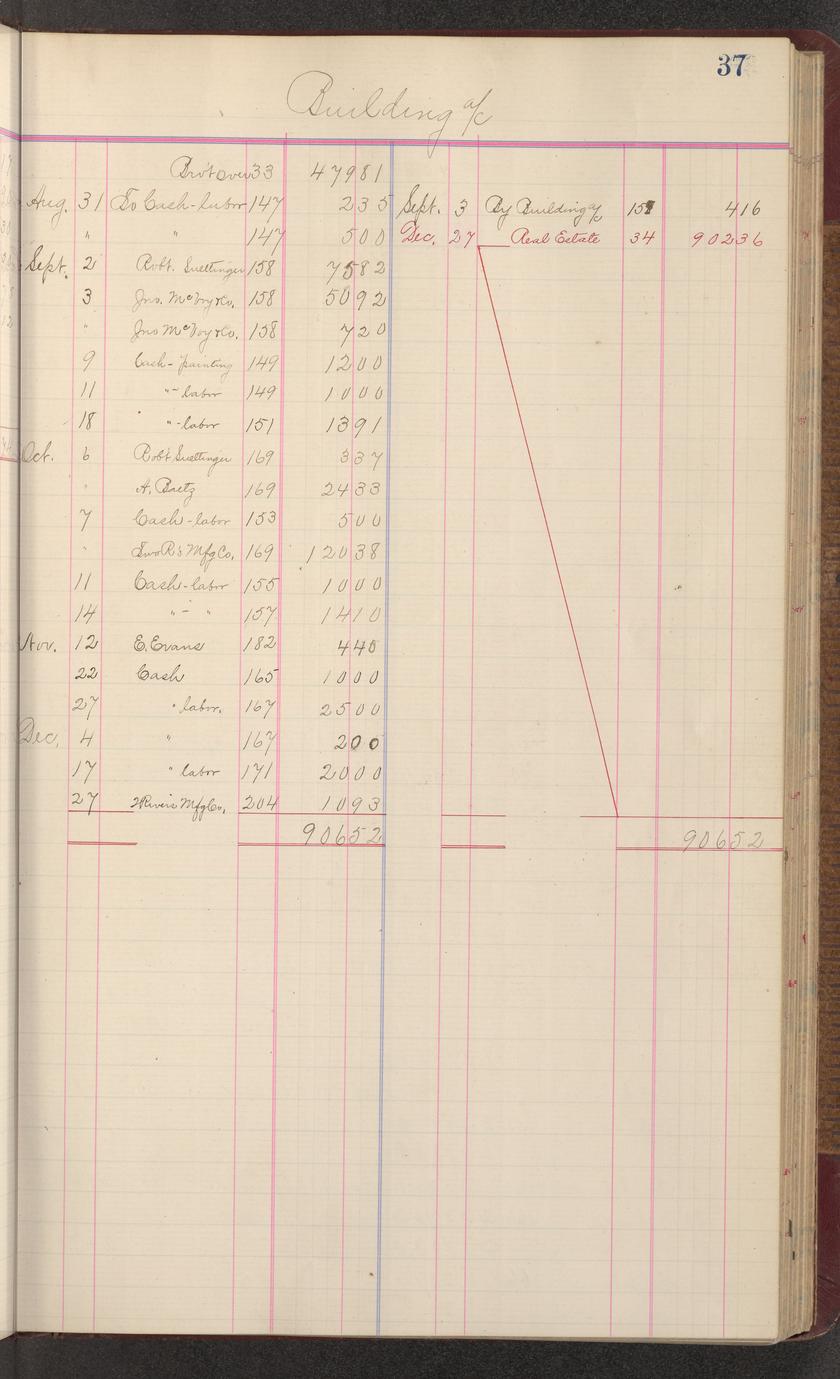 37
Building a/c
Bro't over 33 47981
Aug. 31 To Cash-labor 147 235 Sept. 3 By Building a/c 151 416
" " 147 500 Dec. 27 Real Estate 34 90236
Sept. 2 Robt. 158 7582
3 Jno. McVoy & Co. 158 5092
" Jno McVoy & Co. 158 720
9 Cash-painting 149 1200
11 "-labor 149 1000
18 "-labor 151 1391
Oct. 6 Robt 169 337
" A. Baetz 169 2433
7 Cash-labor 153 500
" Two R's Mfg Co. 169 12038
11 Cash-labor 155 1000
14 "- " 157 1410
Nov. 12 E. Evans 182 440
22 Cash 165 1000
27 " labor. 167 2500
Dec. 4 " 167 200
17 " labor 171 2000
27 2 Rivers Mfg Co. 204 1093
90652 90652